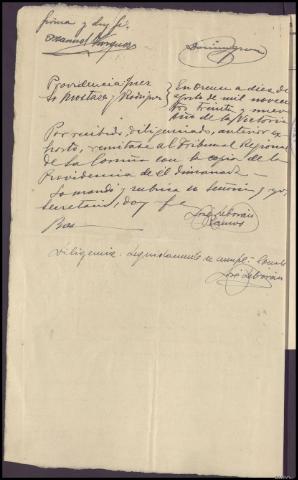 firma y doy fe.
Manuel Vazquez
Providencia Juez
Sr Mostaza y Rodriguez
En Orense a diez de
agosto de mil novecien
tos treinta y nueve
Año de la Victoria
Por recibido diligenciado, anterior ex
horto, remitase al Tribunal Regional
de La Coruña con la copia de la
Providencia de el dimanada
Lo mandó y rubrica su Señoria y yo,
Secretario, doy fe
José Leborán
Ramos
Diligencia. Seguidamente se cumple lo
José Leborán